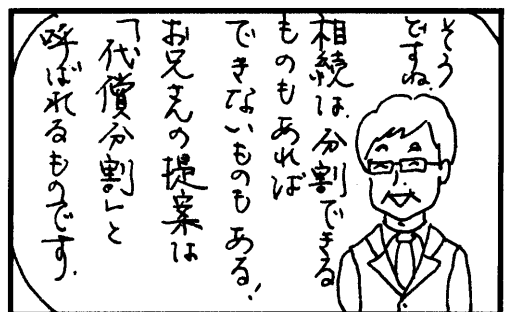 そう
ですね。
相続は、分割できる
ものもあれば
できないものもある!
お兄さんの提案は
「代償分割」と
呼ばれるものです.